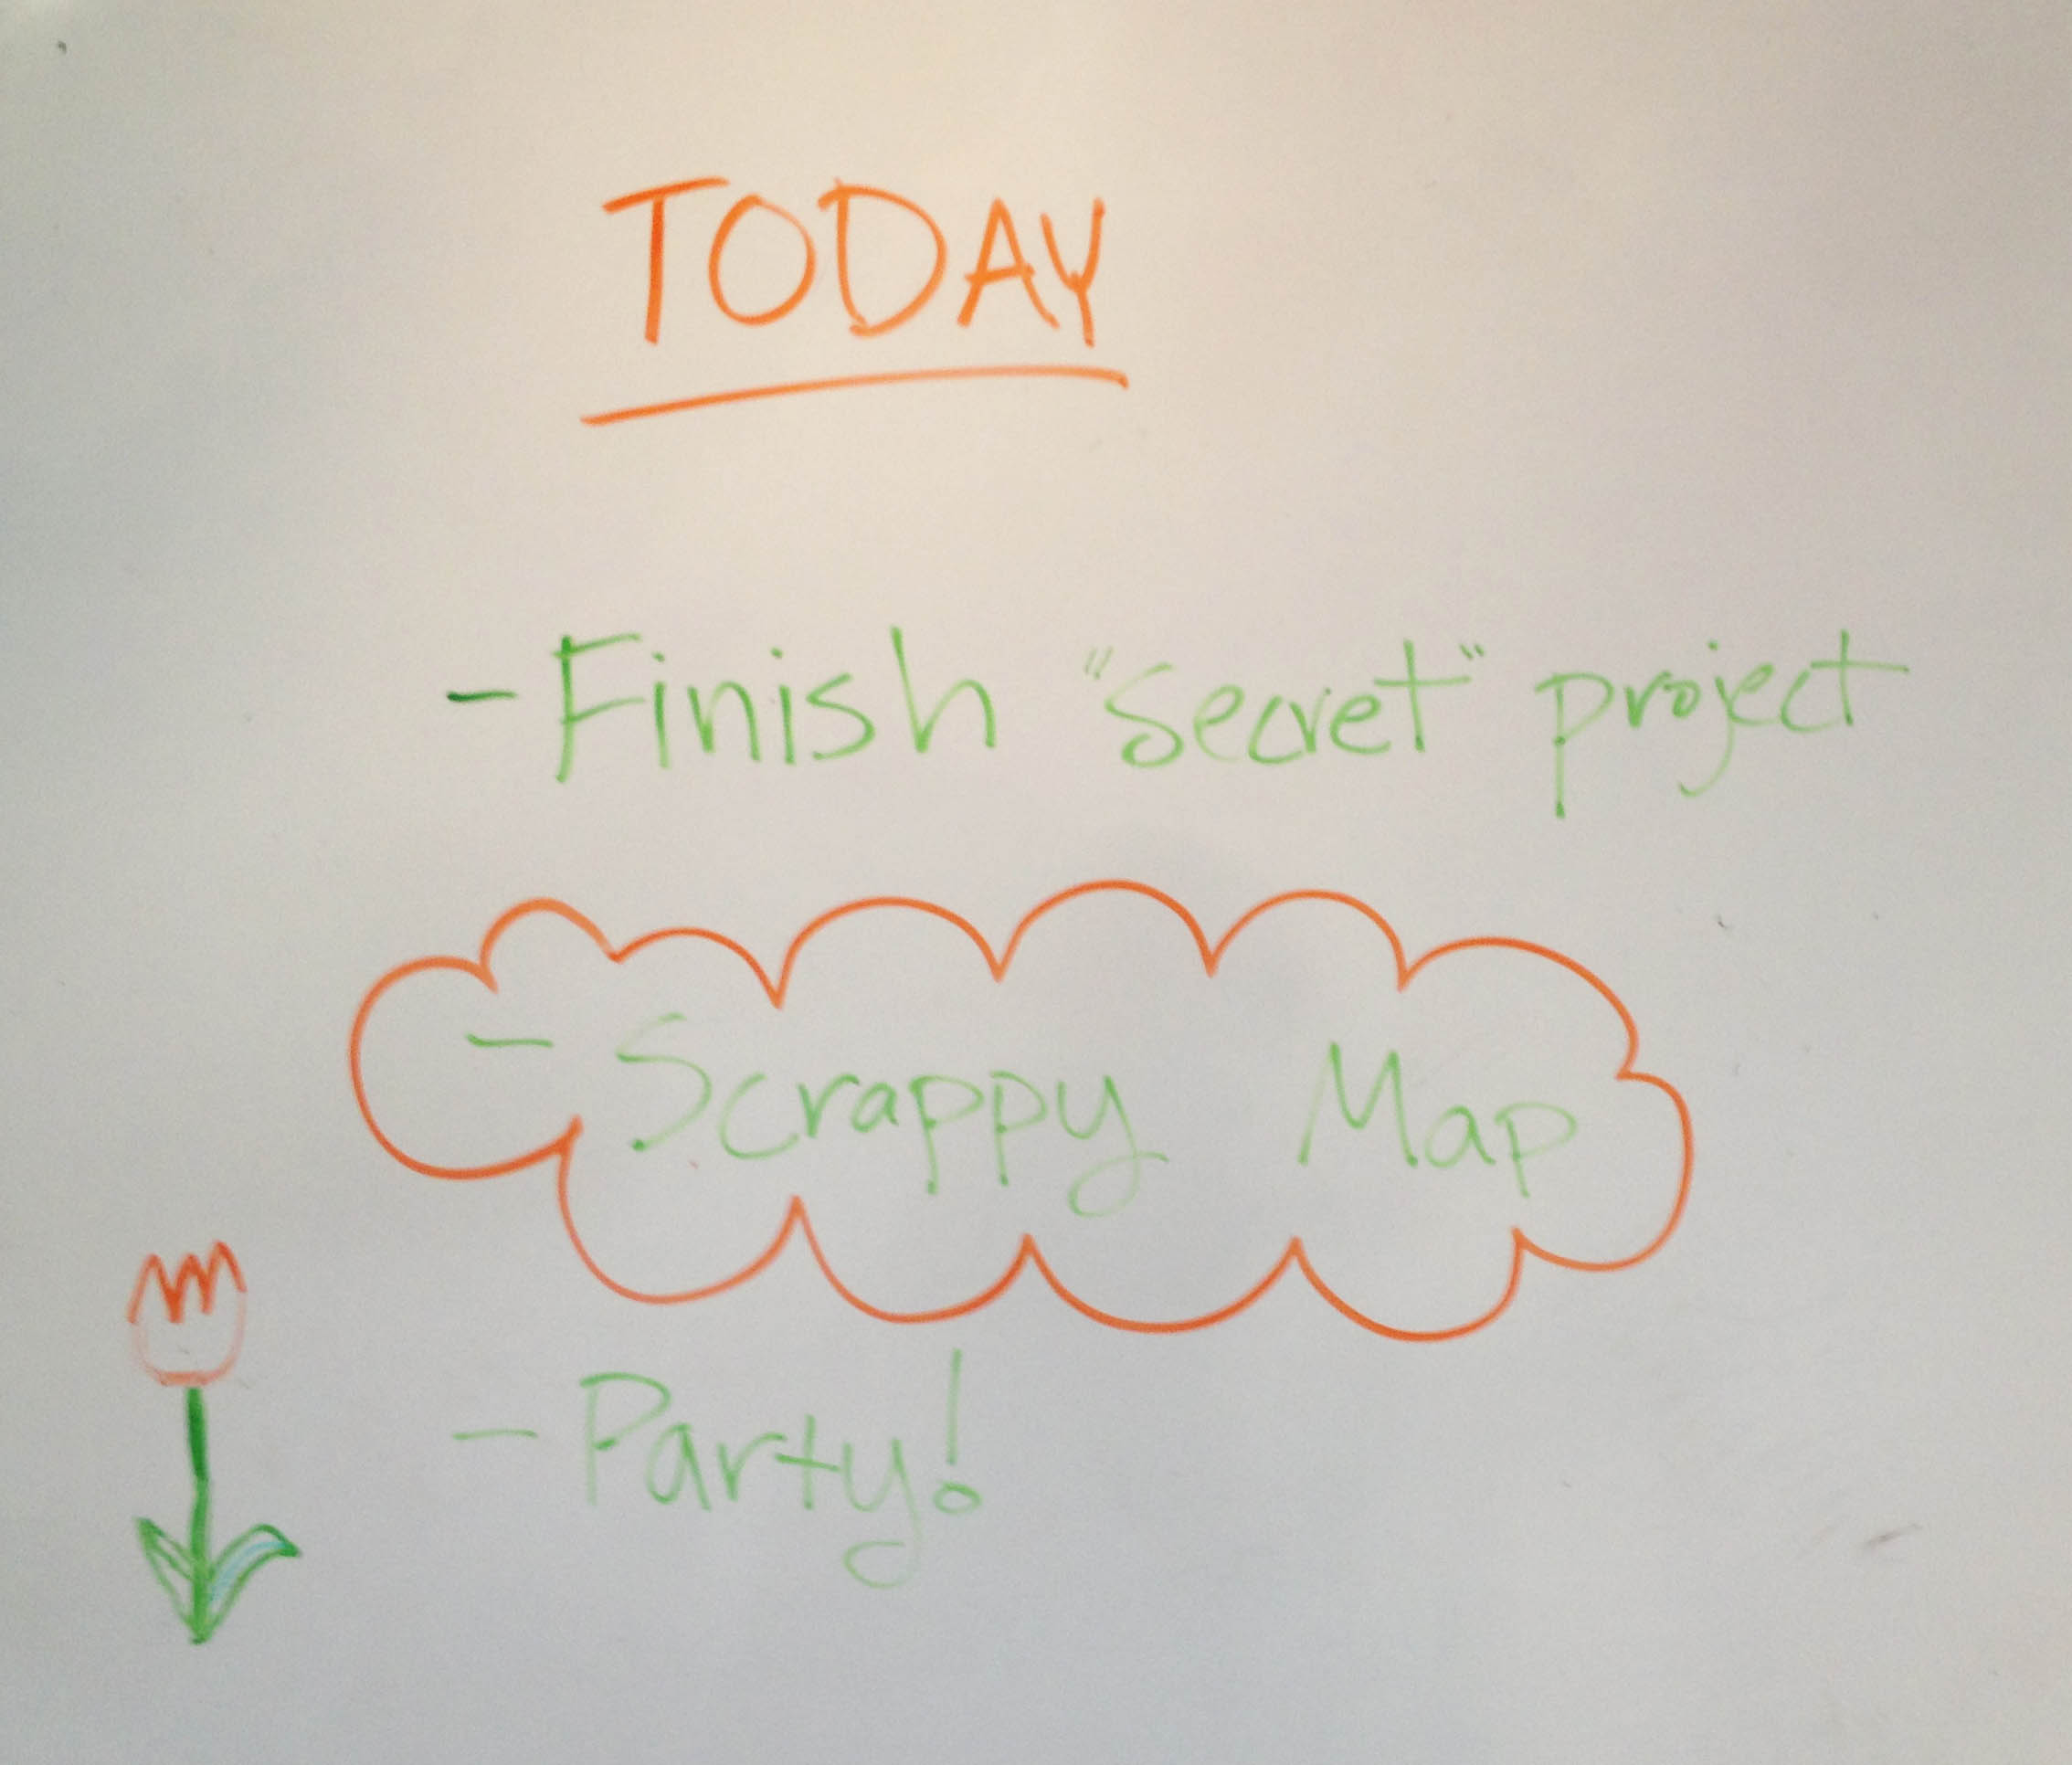 TODAY
- Finish "secret" project
- Scrappy Map
- Party!